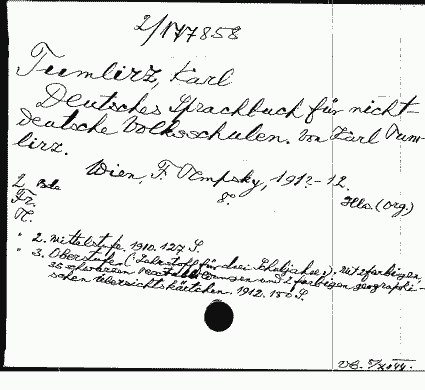 2/177858
Tumlirz, Karl
Deutsches Sprachbuch für nicht-
deutsche Volksschulen. Von Karl Tum-
lirz.
Wien, F. Tempsky, 191?-12.
2 Bde 8° Hlo. (Org)
Fr.
N.
" 2. Mittelstufe. 1910. 127 S.
" 3. Oberstufe. (Lehrstoff für drei Schuljahre). Mit 2 farbigen,
35 schwarzen und 2 farbigen geographi-
schen Übersichtskärtchen. 1912. 150 S.